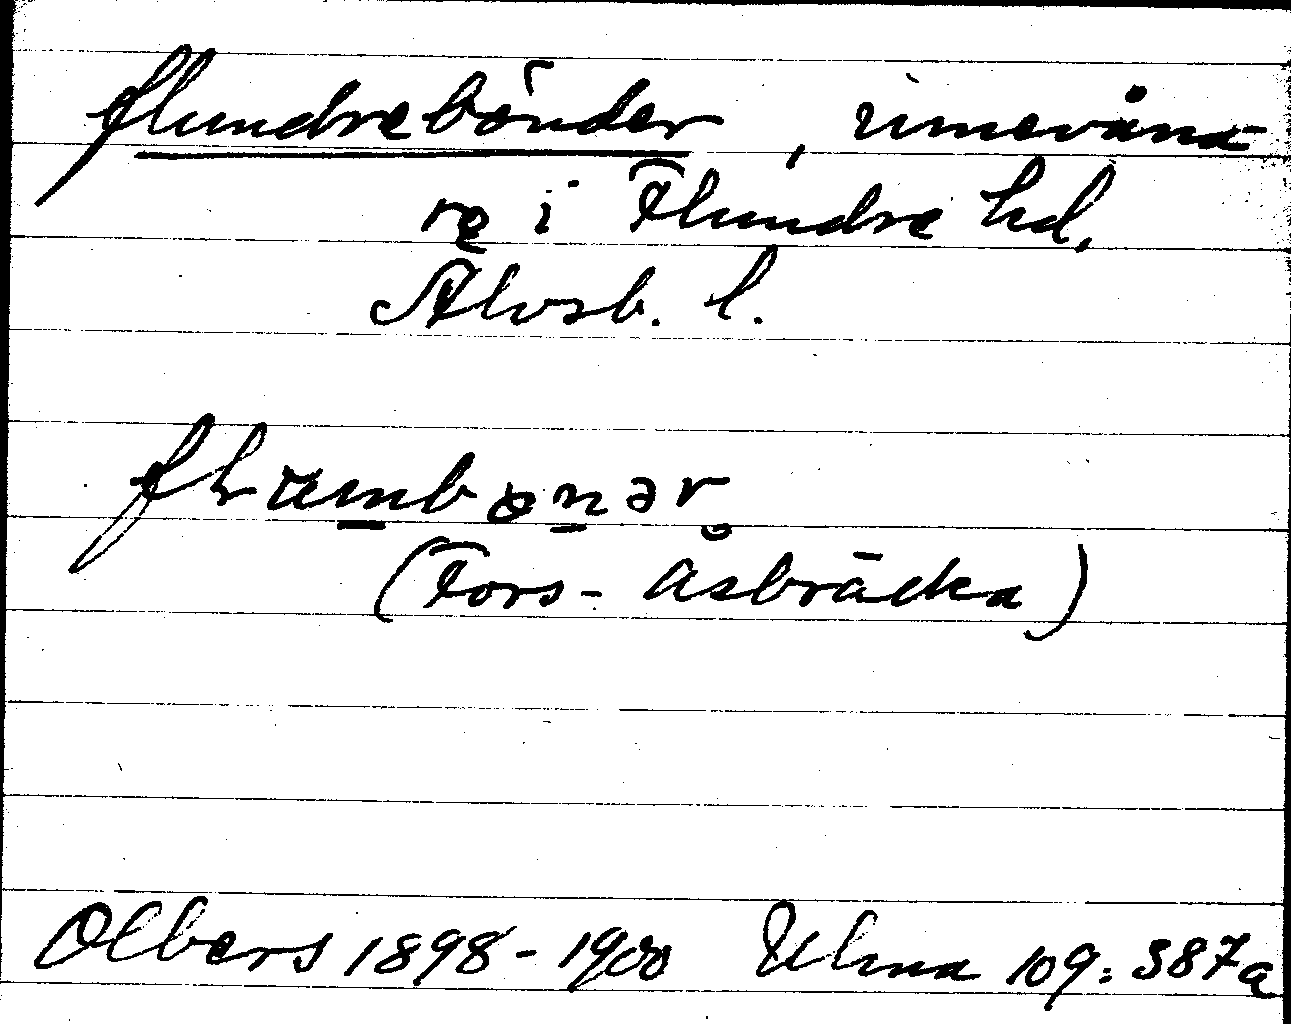 flundrebönder, innevåna-
re i Flundre hd,
Älvsb. l.
(Fors-Åsbräcka)
Olbers 1898-1900 Ulma 109:387a